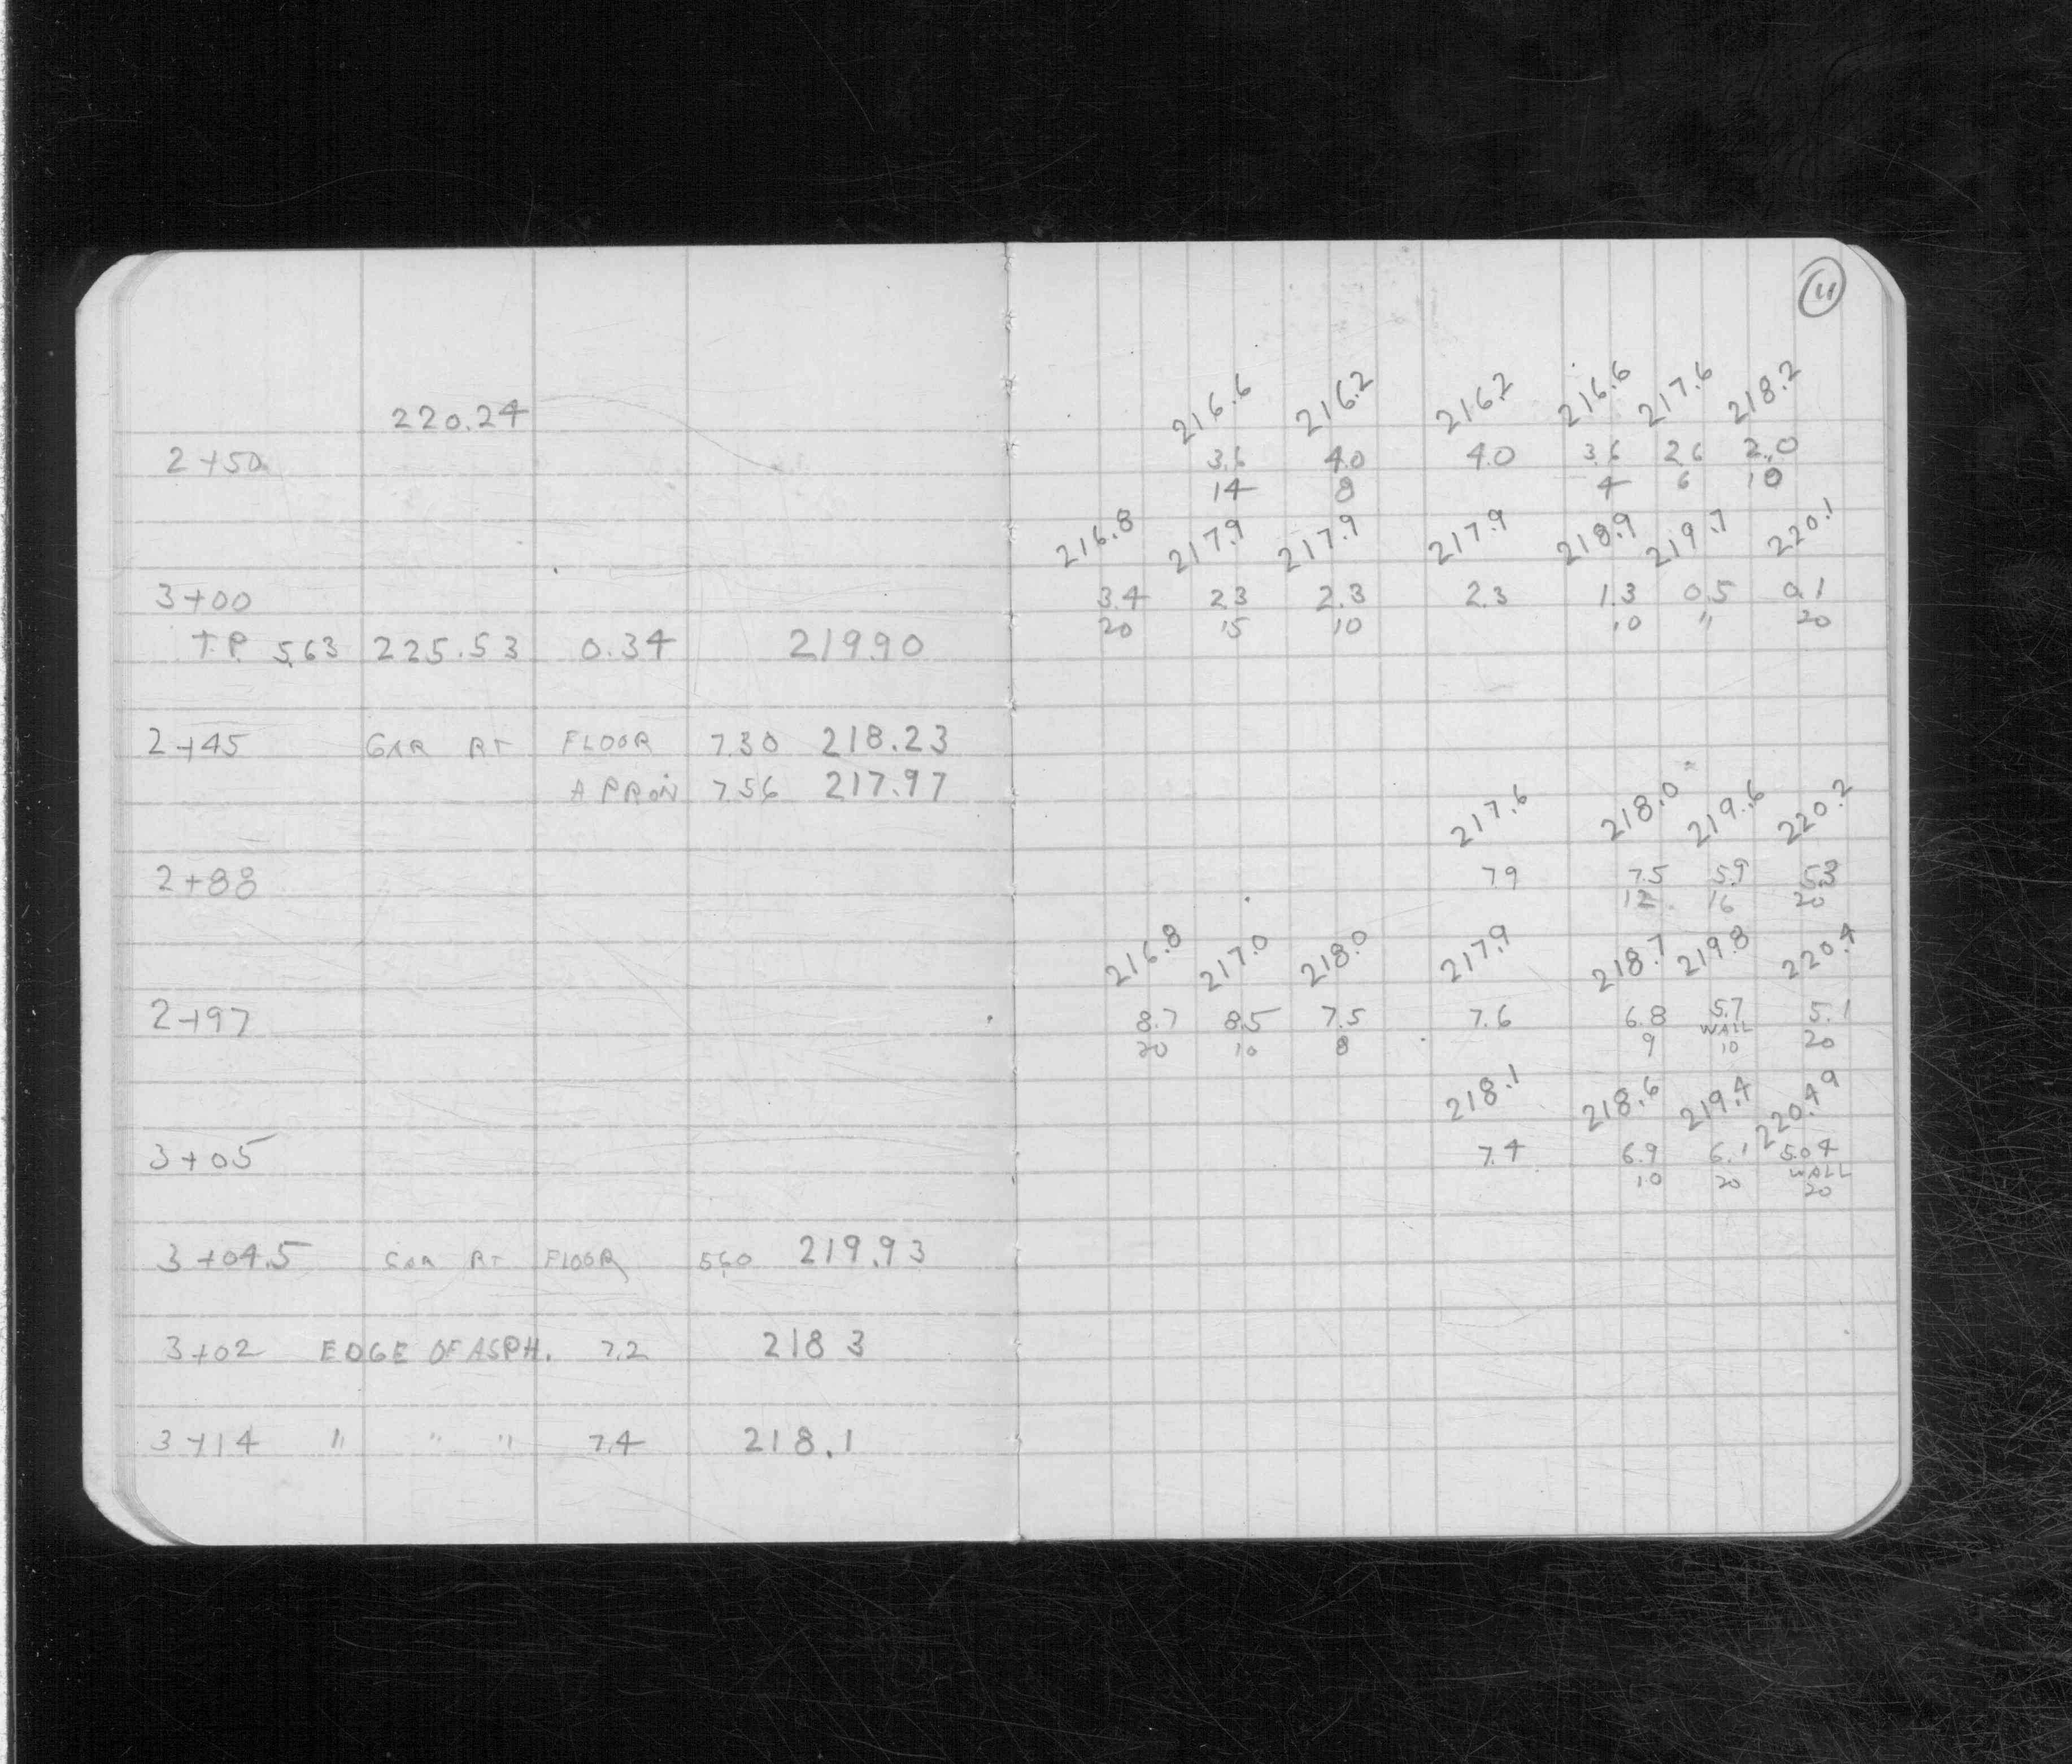 220.24
2+50
3+00
T.P. 5.63 225.53 0.34 219.90
2+45 GAR RT FLOOR 7.30 218.23
APRON 7.56 217.97
2+88
2+97
3+05
3+04.5 GAR RT FLOOR 5.60 219.93
3+02 EDGE OF ASPH. 7.2 218 3
3+14 " " " 7.4 218.1
216.6 216.2 216.2 216.6 217.6 218.2
3.6 4.0 4.0 3.6 2.6 2.0
14 8 4 6 10
216.8 217.9 217.9 217.9 218.9 219.7 220.1
3.4 2.3 2.3 2.3 1.3 0.5 0.1
20 15 10 10 " 20
217.6 218.0 219.6 220.2
7.9 7.5 5.9 5.3
12 16 20
216.8 217.0 218.0 217.9 218.7 219.8 220.4
8.7 8.5 7.5 7.6 6.8 5.7 5.1
WALL
20 10 8 9 10 20
218.1 218.6 219.4 220.49
7.4 6.9 6.1 5.04
WALL
10 20 20